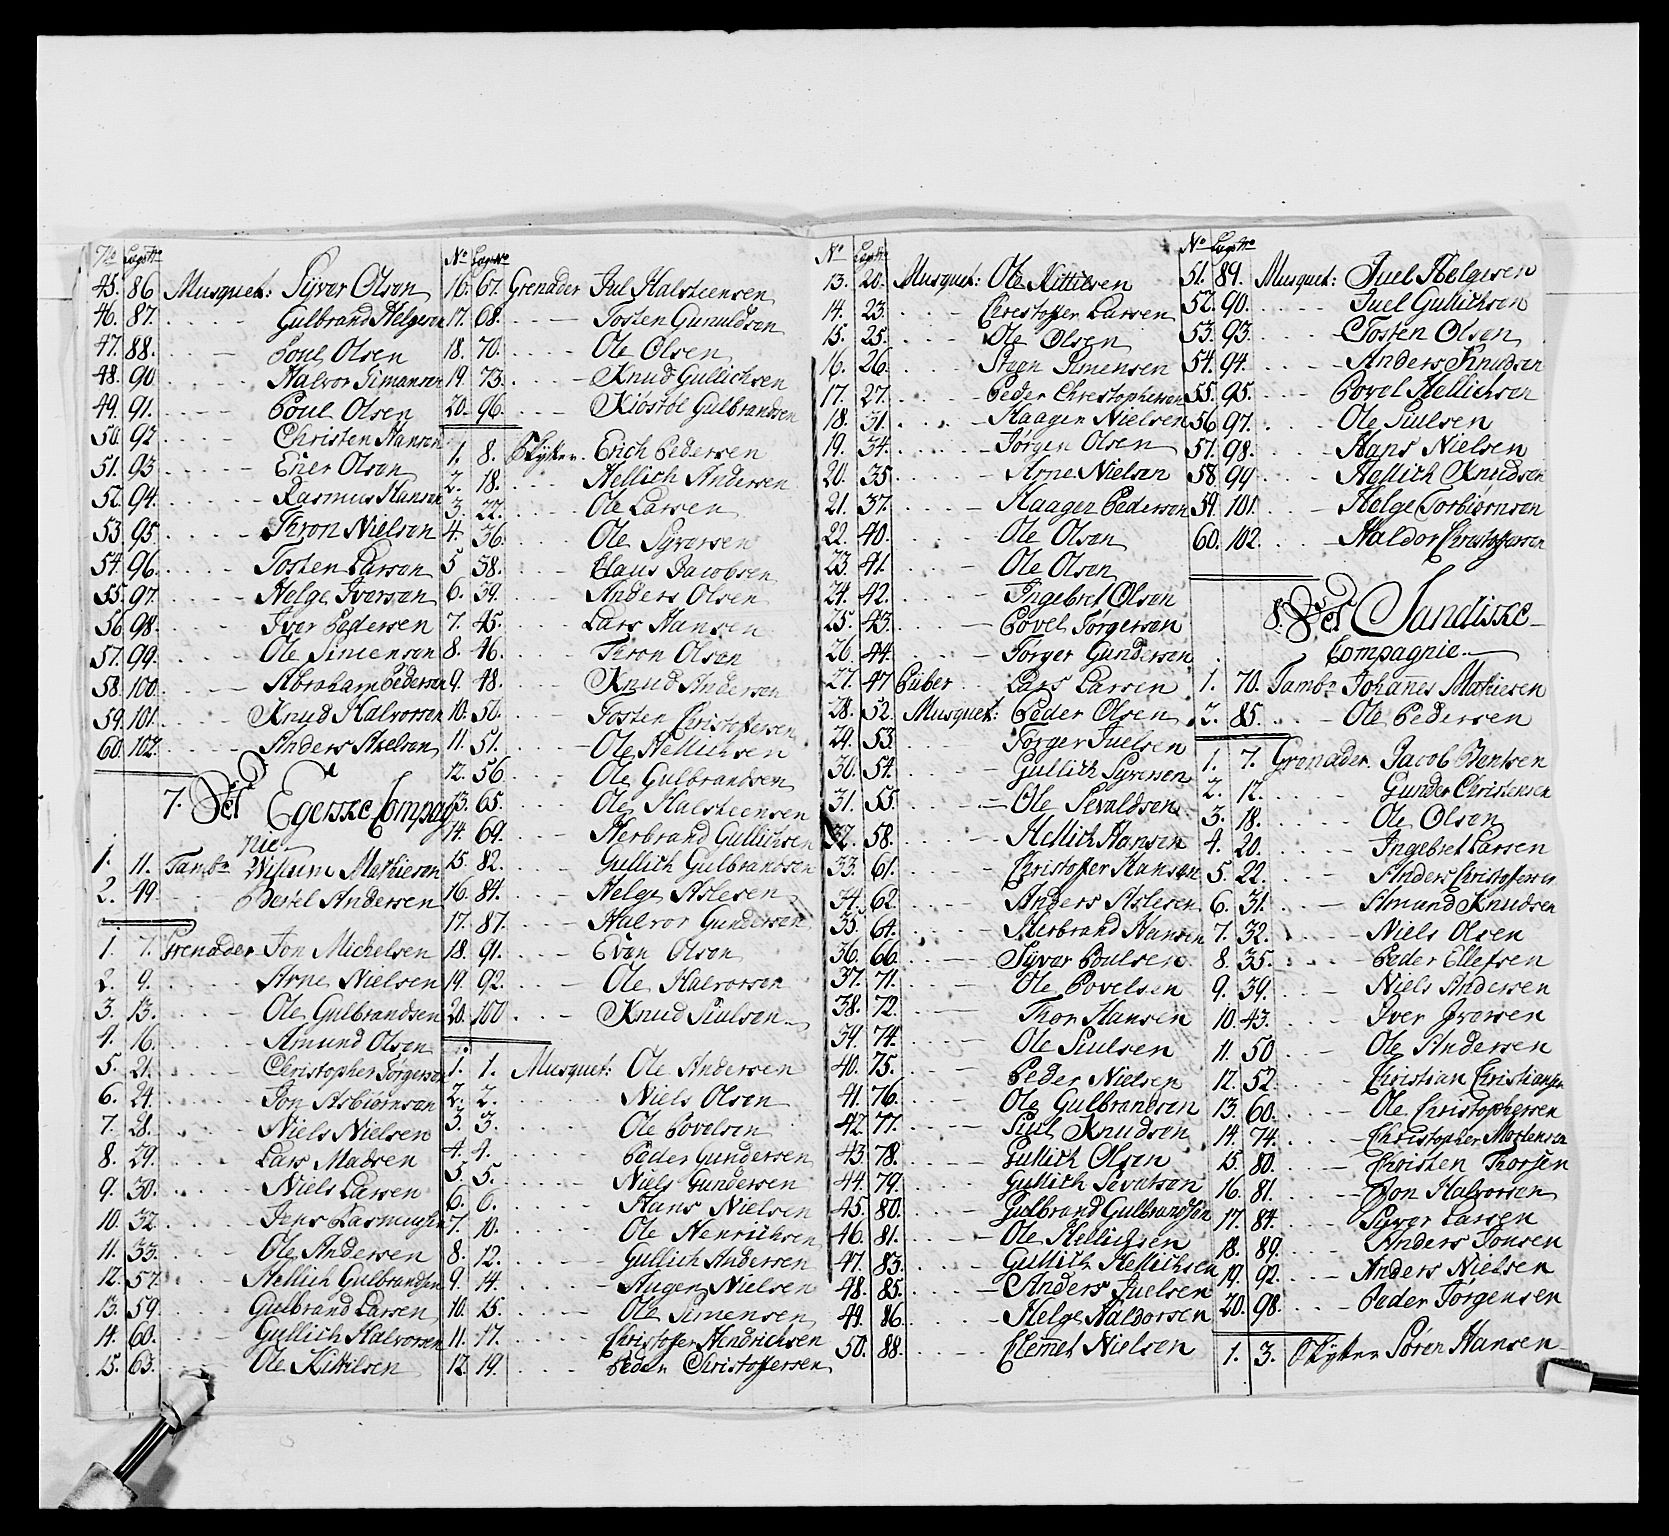 No Lags No
45. 86 Musquet: Syver Olsen
46. 87. Gulbrand Helgesen
47. 88. Poul Olsen
48. 90. Halvor Simansen
49. 91. Poul Olsen
50. 92 Christen Hansen
51. 93 Erier Olsen
52. 94. Rasmus Hansen
53. 95. Thron Nielsen
54. 96. Tosten Larsen
55. 97. Helge Iversen
56. 98. Iver Pedersen
57. 99. Ole Simensen
58. 100. Abraham Pedersen
59. 101. Knud Halvorsen
60. 102. Anders Axelsen
7. Det Egerske Compag
nie
1. 11. Tambr Wilhum Mathiesen
2. 49. Bertel Andersen
1. 7. Grenader Jon Michelsen
2. 9. Arne Nielsen
3. 13. Ole Gulbrandsen
4. 16. Amund Olsen
5. 21. Christopher Torgersen
6. 24. Jon Asbiørnsen
7. 28. Niels Nielsen
8. 29. Lars Madsen
9. 30. Niels Larsen
10. 32. Jens Rasmusen
11. 33. Ole Andersen
12. 57. Hellich Gulbrandsen
13. 59. Gulbrand Larsen
14. 60. Gullich Halvorsen
15. 63. Ole Kittilsen
No Lags No
16. 67. Grenader Jul Halsteensen
17. 68. Tosten Gunuldsen
18. 70. Ole Olsen
19. 73. Knud Gullichsen
20. 96. Kiostol Gulbrandsen
1. 8. Skytter. Erich Pedersen
2. 18. Hellich Andersen
3. 22. Ole Larsen
4. 36. Ole Syversen
5 38. Claus Jacobsen
6. 39. Anders Olsen
7. 45. Lars Hansen
8. 46. Thron Olsen
9. 48. Knud Andersen
10. 50. Tosten Christoffersen
11. 51. Ole Hellichsen
12. 56. Ole Gulbrandsen
13. 65. Ole Halsteensen
14. 69. Herbrand Gullichsen
15. 82. Gullich Gulbrandsen
16. 84. Helge Aslesen
17. 87. Halvor Gundersen
18. 91. Even Olsen
19. 92. Ole Halvorsen
20. 100 Knud Siulsen
1. 1. Musquet: Ole Andersen
2. 2. Niels Olsen
3. 3. Ole Povelsen
4. 4. Peder Gundersen
5. 5. Niels Gundersen
6. 6. Hans Nielsen
7. 10. Ole Henrichsen
8. 12. Gullich Andersen
9. 14. Augen Nielsen
10. 15. Ole Simensen
11. 17. Christoffer Hendrichsen
12. 19. Peder Christoffersen
No Lags No
13. 20. Musquet: Ole Kittilsen
14. 23. Christoffer Larsen
15. 25. Ole Olsen
16. 26. Steen Simensen
17. 27. Peder Christophersen
18. 31. Haagen Nielsen
19. 34. Jørgen Olsen
20. 35. Arne Nielsen
21. 37. Haagen Pedersen
22. 40. Ole Olsen
23. 41. Ole Olsen
24. 42. Ingebret Olsen
25. 43. Povel Torgersen
26. 44. Torger Gundersen
27. 47 Piiber Lars Larsen
28. 52. Musquet: Peder Olsen
29. 53. Torger Juelsen
30. 54. Gullich Syversen
31. 55. Ole Sevaldsen
32. 58. Hellich Hansen
33. 61. Christoffer Hansen
34. 62. Anders Aslesen
35. 64. Herbrand Hansen
36. 66. Syver Poulsen
37. 71. Ole Povelsen
38. 72. Thor Hansen
39. 74. Ole Siulsen
40. 75. Peder Nielsen
41. 76. Ole Gulbrandsen
42 77. Siul Knudsen
43 78. Gullich Olsen
44. 79. Gullich Sevatsen
45. 80. Gulbrand Gulbrandsen
46. 81. Ole Hellichsen
47. 83. Gullich Hellichsen
48. 85. Anders Juelsen
49. 86. Helge Haldorsen
50. 88. Clemet Nielsen
No Lags No
51. 89. Musquet: Juel Helgesen
52. 90. Juel Gullichsen
53. 93. Tosten Olsen
54. 94. Anders Knudsen
55. 95. Povel Hellichsen
56 97. Ole Siulsen
57. 98. Hans Nielsen
58. 99 Hellich Knudsen
59. 101. Helge Torbiørnsen
60. 102. Haldor Christoffersen
8. Det Sandiske
Compagnie
1. 70. Tambr Johanes Mathiesen
2. 85. Ole Pedersen
1. 7. Grenader. Jacob Bentsen
2. 12. Gunder Christensen
3. 18. Ole Olsen
4. 20. Ingebret Larsen
5. 22. Anders Christoffersen
6. 31. Amund Knudsen
7. 32. Niels Olsen
8. 35. Peder Ellefsen
9. 39. Niels Andersen
10. 43. Iver Iversen
11. 50 Ole Andersen
12. 52. Christian Christiansen
13. 60. Ole Christophersen
14. 74. Christopher Mortensen
15. 80. Thoisten Thorsen
16. 81. Jon Halvorsen
17. 84. Syver Larsen
18. 89. Anders Tonsen
19. 92. Anders Nielsen
20. 98. Peder Torgensen
1. 3. Skytter Søren Hansen